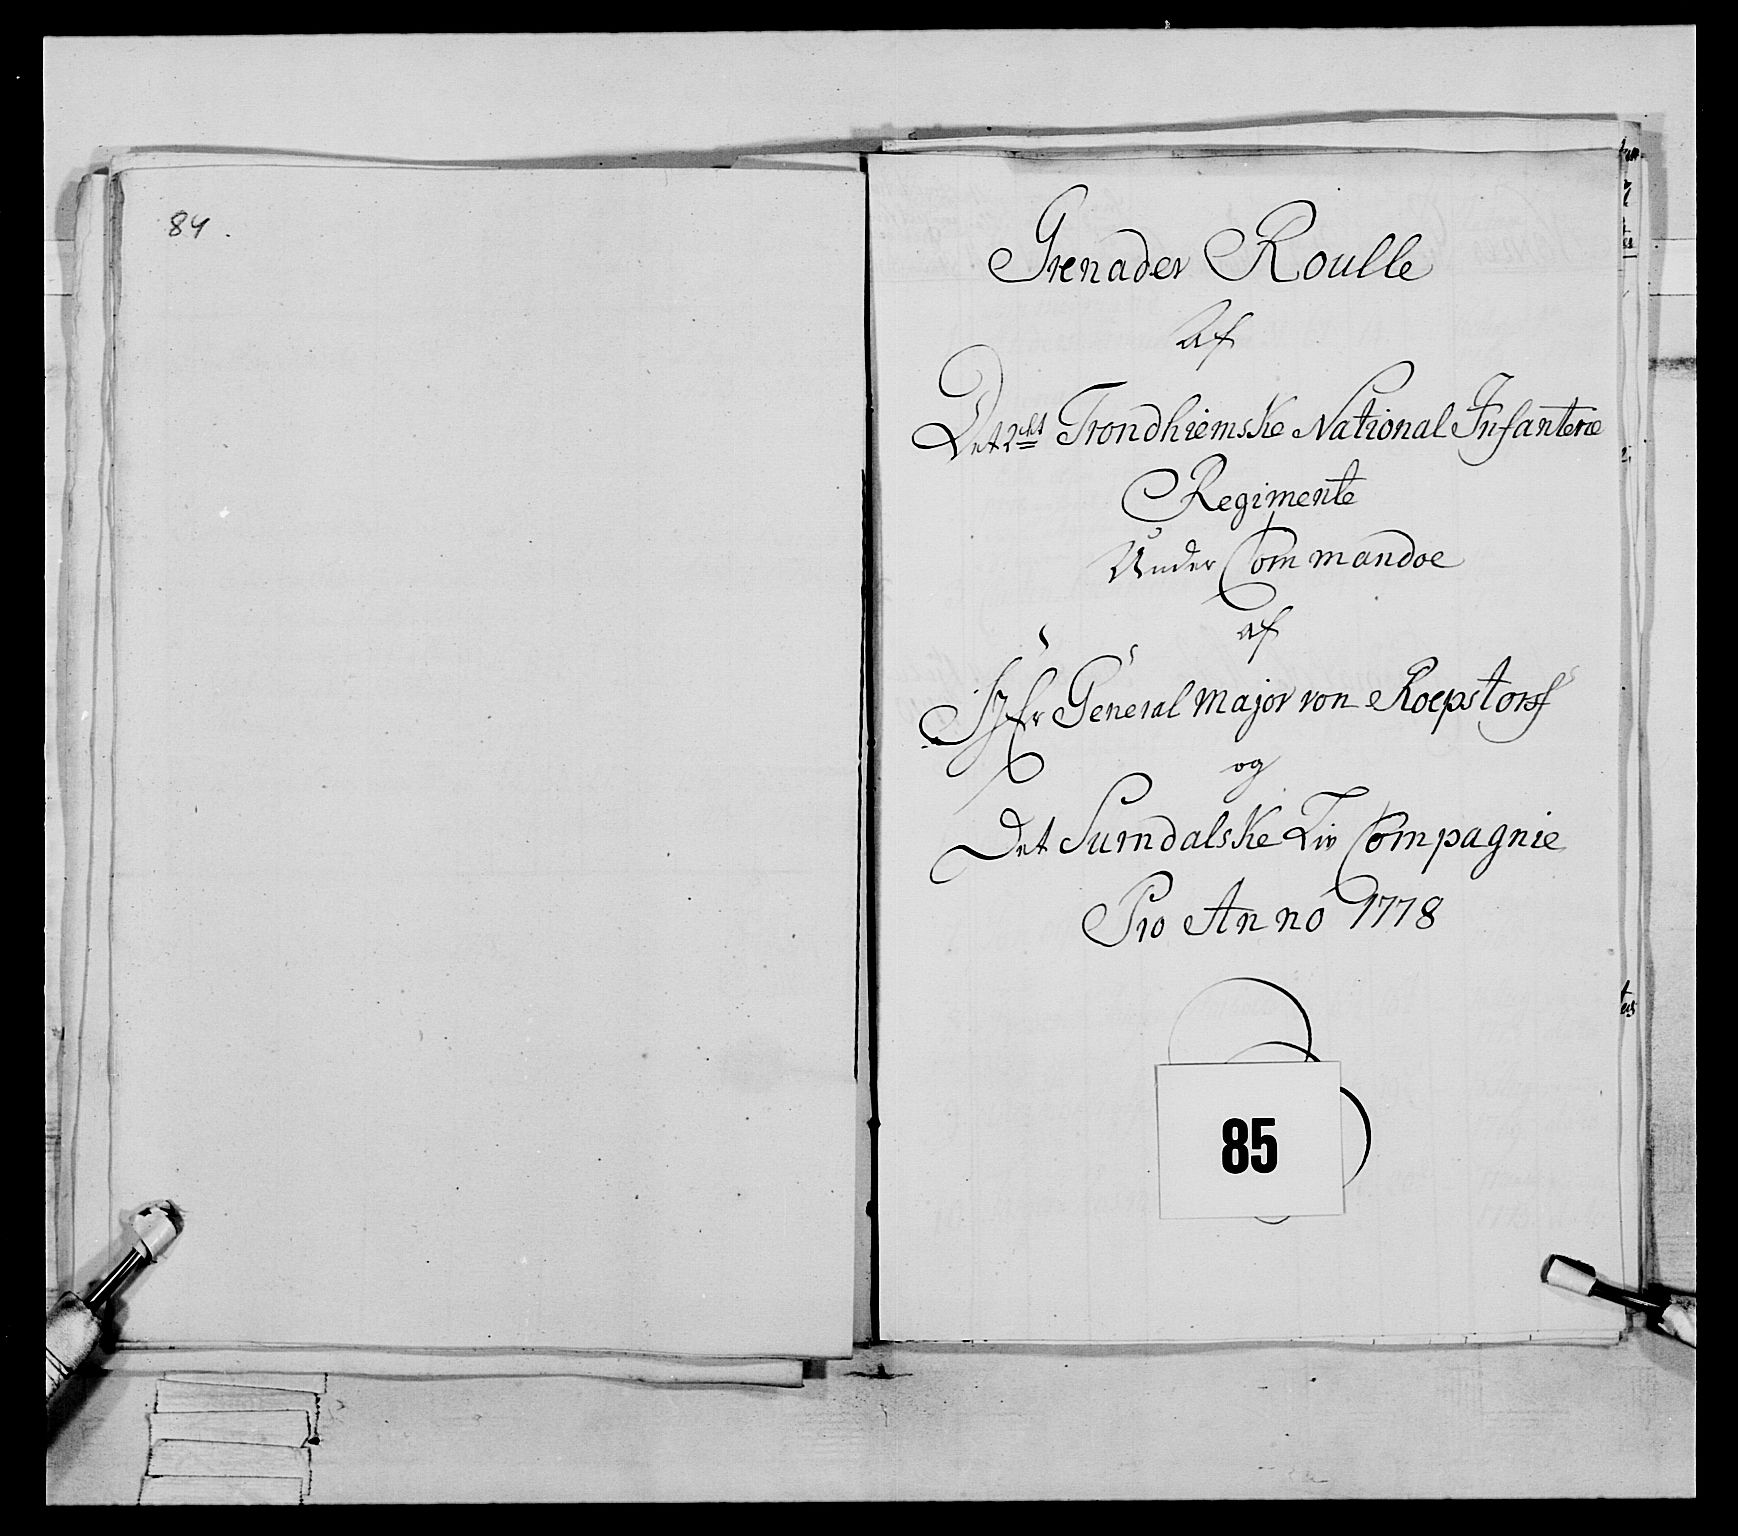 84.
Grenader Roulle
Af
Det 2det Trondhiemske National Infanterie
Regimente
Under Commandoe
af
Hr General Major von Roepstorff
og
Det Surndalske Liv Compagnie
Pro Anno 1778
85